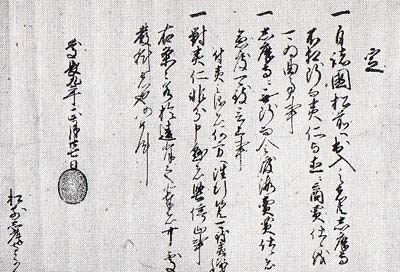 定
一自諸國松前へ出入之者共志摩守
不相断而夷仁与直ニ商買仕候儀
可為曲事事
一志摩守ニ無断而令渡海賣買仕候者
急度可致言上事
付夷之儀者何方へ往行候共可致夷次第事
一對夷仁非分申懸者堅停止事
右條々若於違背之輩者可處
嚴科者也仍如件
慶長九年正月廿七日
松前志摩とのへ